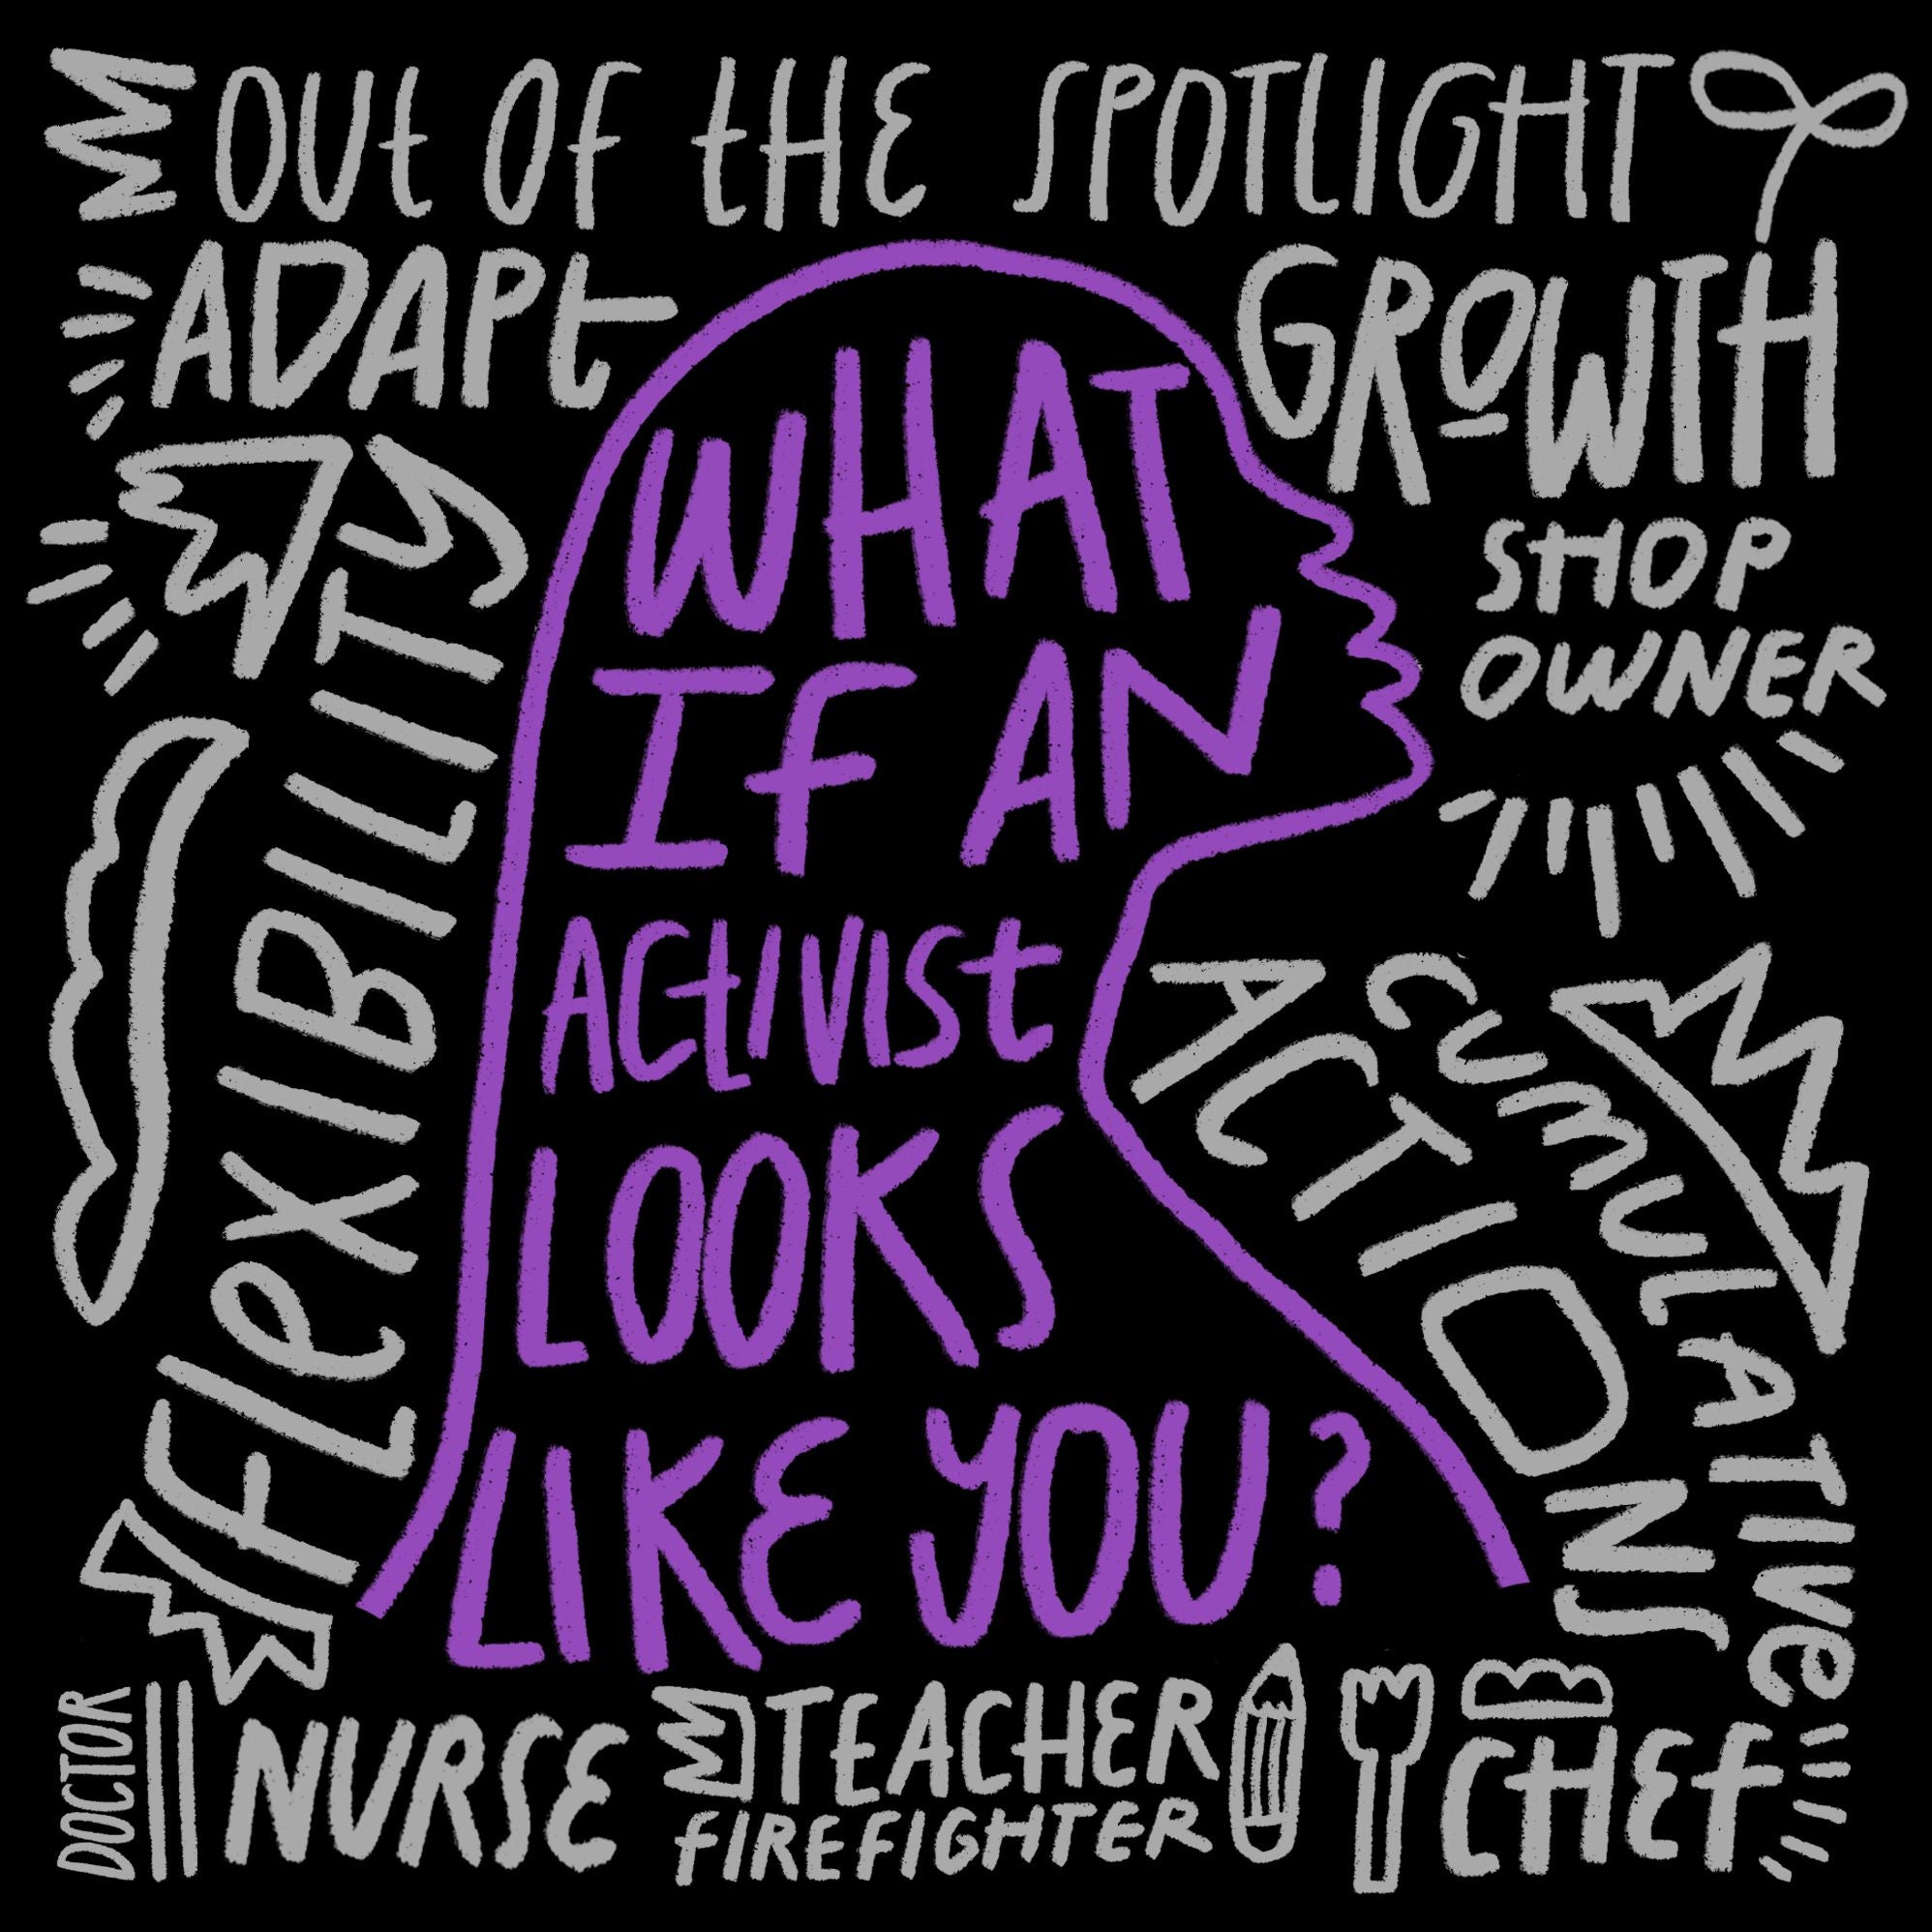 OUT OF THE SPOTLIGHT
ADAPT
GROWTH
WHAT
IF AN
ACTIVIST
LOOKS
LIKE YOU?
FLEXIBILITY
SHOP
OWNER
CUMULATIVE
ACTIONS
DOCTOR
NURSE
TEACHER
FIREFIGHTER
CHEF